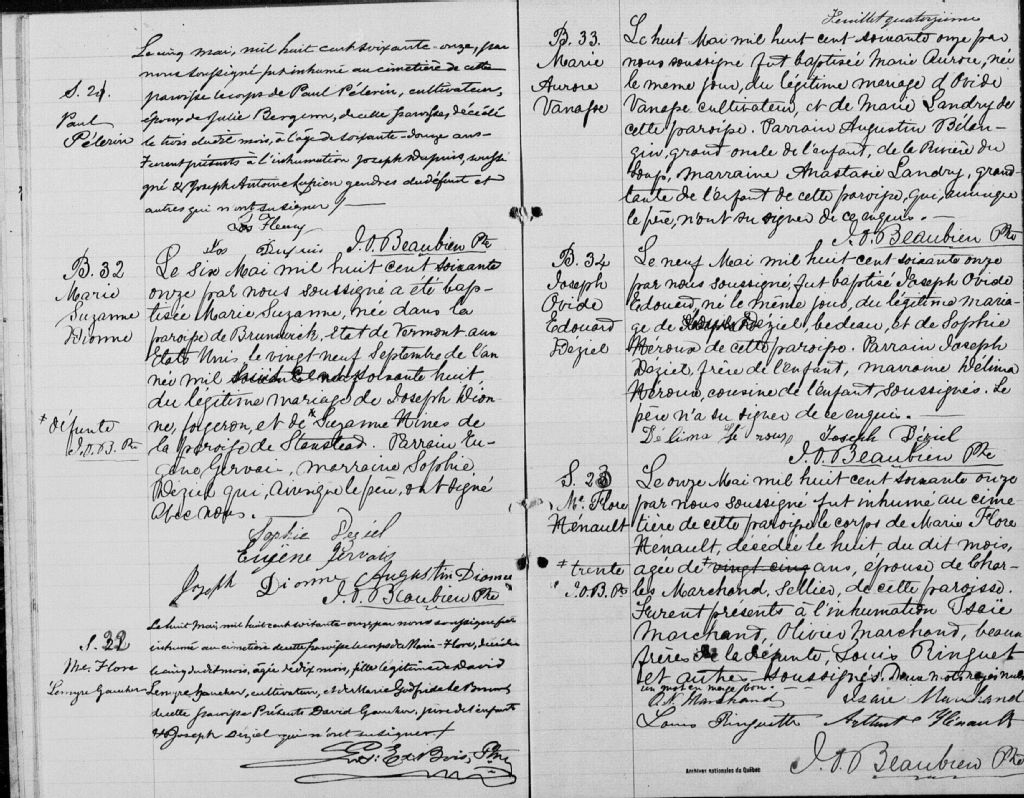 S. 21.
Paul
Pélerin
Le cinq mai, mil huit cent soixante-onze, par
nous soussigné fut inhumé au cimetière de cette
paroisse le corps de Paul Pélerin, cultivateur,
époux de Julie Bergeron, de cette paroisse, décédé
le trois du dit mois, à l'âge de soixante-douze ans.
Furent présents à l'inhumation Joseph Dupuis, soussi-
gné & Joseph Antoine gendres du défunt et
autres qui n'ont su signer /
Fleury
Jos Dupuis J. O. Beaubien Ptre
B. 32
Marie
Suzanne
Dionne
Le six Mai mil huit cent soixante
onze par nous soussigné a été bap-
tisée Marie Suzanne, née dans la
paroisse de Brunswick, Etat de Vermont aux
Etats Unis, le vingt neuf Septembre de l'an
née mil soixante huit
du légitime mariage de Joseph Dion-
ne, forgeron, et de + Suzanne Hines de
la paroisse de Stanstead. Parrain Eu-
gène Gervais, marraine Sophie
Déziel qui, avec que le père, ont signé
avec nous.
+ défunte
J.O.B. Ptre
Sophie Déziel
Eugène Gervais
Joseph Dionne Augustin Dionne
J. O. Beaubien Ptre
S. 22
Me. Flore
Lemyre Gauthier
Le huit Mai, mil huit cent soixante-onze par nous soussigné fut
inhumé au cimetière de cette paroisse le corps de Marie-Flore, décédée
le cinq du dit mois, âgée de dix mois, fille légitime de David
Lemyre Gauthier, cultivateur, et de Marie
de cette paroisse. Présents David Gauthier, père de l'enfant
& Joseph Déziel qui n'ont su signer /
Bois, Ptre
Feuillet quatorzième
B. 33.
Marie
Aurore
Vanasse
Le huit Mai mil huit cent soixante onze par
nous soussigné fut baptisée Marie Aurore, née
le meme jour, du légitime mariage d'Ovide
Vanasse cultivateur, et de Marie Landry de
cette paroisse. Parrain Augustin Bélan-
ger, grand oncle de l'enfant, de la Rivière du
Loup, marraine Anastasie Landry, grand-
tante de l'enfant de cette paroisse, qui, ainsi que
le père, n'ont su signer de ce enquis. —
J. O. Beaubien Ptre
B. 34
Joseph
Ovide
Edouard
Déziel
Le neuf Mai mil huit cent soixante onze
par nous soussigné, fut baptisé Joseph Ovide
Edouard, né le même jour, du légitime maria-
ge de Déziel, bedeau, et de Sophie
Héroux de cette paroisse. Parrain Joseph
Déziel, frère de l'enfant, marraine Délima
Héroux, cousine de l'enfant soussignés. Le
père n'a su signer de ce enquis. —
Délima Joseph Déziel
J. O. Beaubien Ptre
S. 23
Me. Flore
Hénault
Le onze Mai mil huit cent soixante onze
par nous soussigné fut inhumé au cime
tière de cette paroisse le corps de Marie Flore
Hénault, décédée le huit, du dit mois,
agée de + vingt cinq ans, épouse de Char-
les Marchand, Sellier, de cette paroisse.
Furent présents à l'inhumation Isaïe
Marchand, Olivier Marchand, beaux
frères de la défunte, Louis Ringuet
et autres soussignés. Deux mots rayés nuls
un mot en marge bon. —
+ trente
J.O.B. Ptre
Marchand Isaïe Marchand
Louis Ringuette Arthur Hénault
J. O. Beaubien Ptre
Archives nationales du Québec